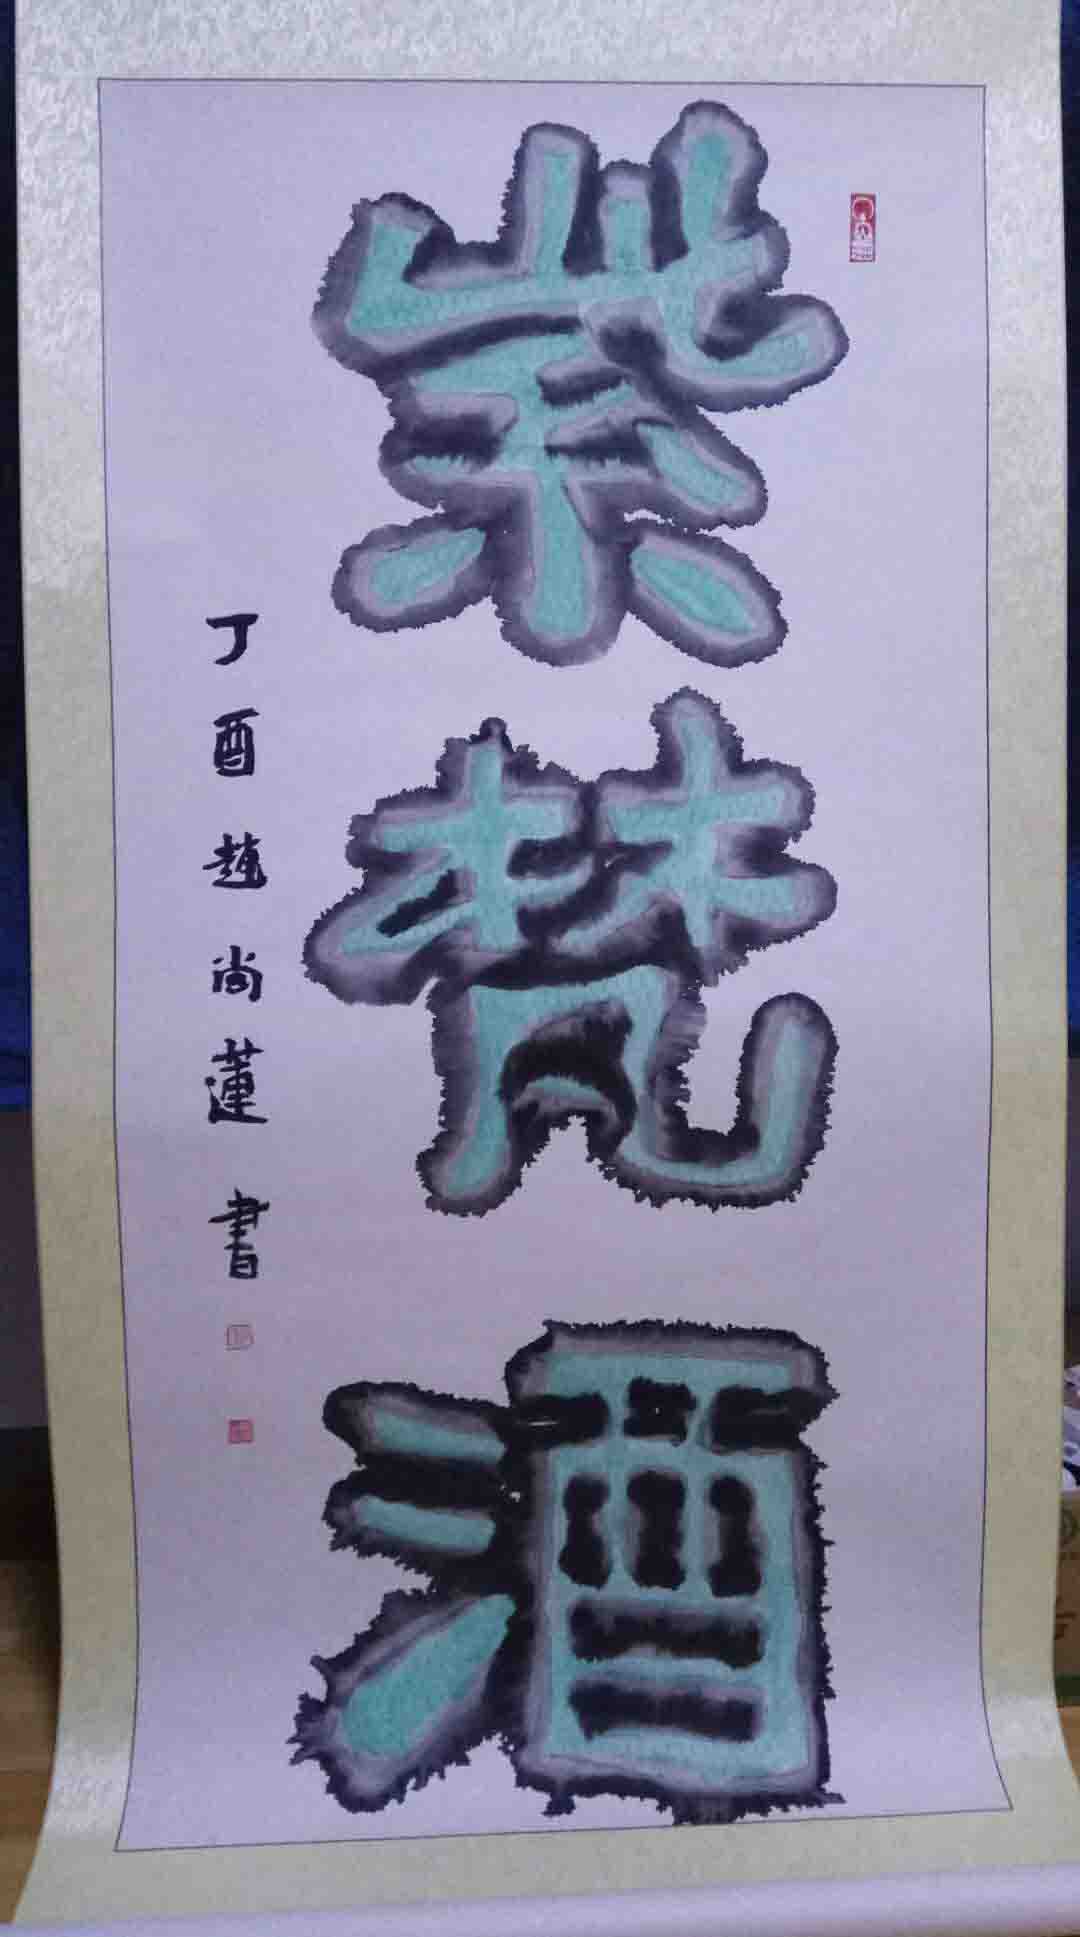 紫梵酒
丁酉趙尚蓮書